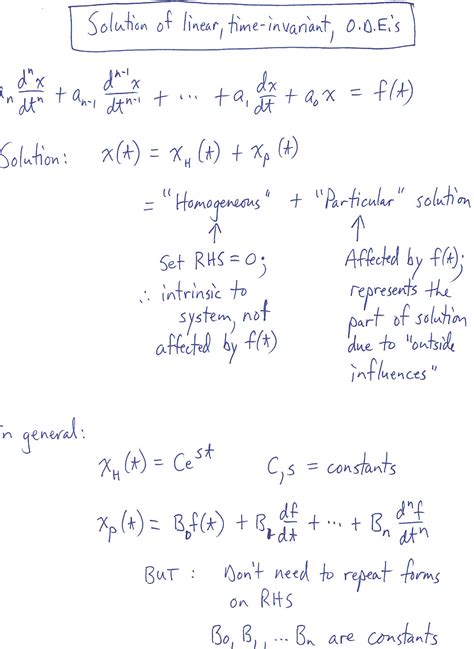 Solution of linear, time-invariant, O.D.E.'s
a_n d^n x/dt^n + a_{n-1} d^{n-1} x/dt^{n-1} + ... + a_1 dx/dt + a_0 x = f(t)
Solution: x(t) = x_H(t) + x_P(t)
= "Homogeneous" + "Particular" solution
↑ ↑
Set RHS = 0; Affected by f(t);
∴ intrinsic to represents the
system, not part of solution
affected by f(t) due to "outside
influences"
In general:
x_H(t) = Ce^{st} C, s = constants
x_P(t) = B_0 f(t) + B_1 df/dt + ... + B_n d^n f/dt^n
BUT: Don't need to repeat forms
on RHS
B_0, B_1, ... B_n are constants